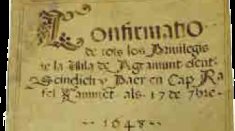 Confirmatio
de tots los Privilegis
de la Vila de Agramunt essent
Sindich y Baer en Cap Ra
fel als 17 de 7bre
1648